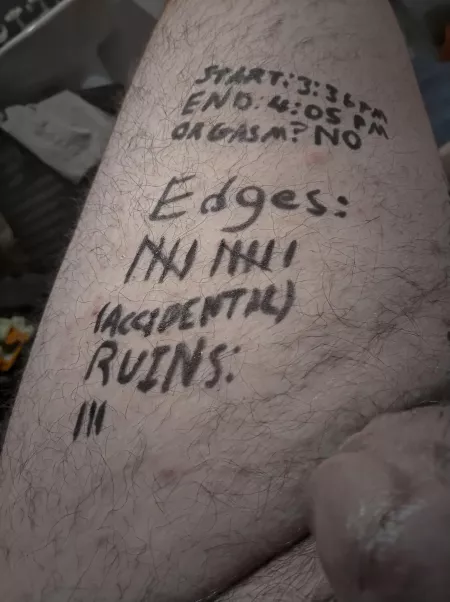 START: 3:36 PM
END: 4:05 PM
ORGASM? NO
Edges:
(ACCIDENTAL)
RUINS:
III